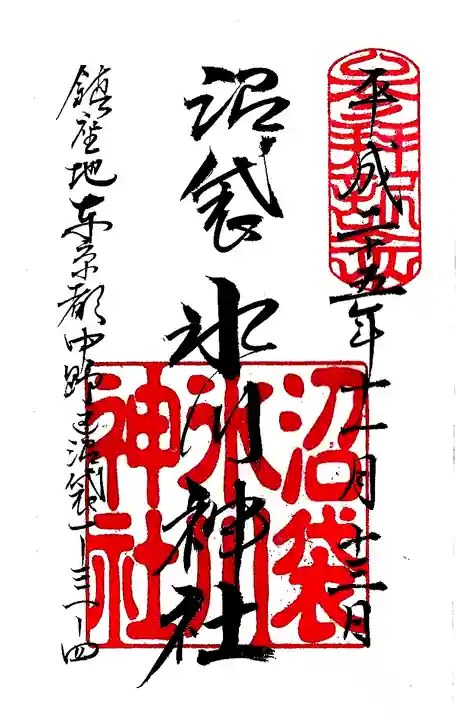 奉拝
平成二十五年十一月十二日
沼袋氷川神社
沼袋氷川神社
鎮座地東京都中野区沼袋一ー三一ー四